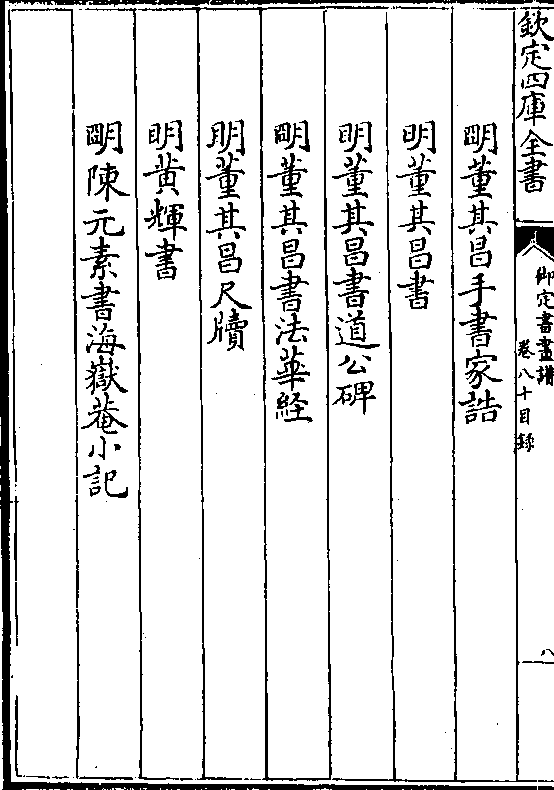 欽定四庫全書
御定書畫譜
卷八十目録
八
明董其昌手書家誥
明董其昌書
明董其昌書道公碑
明董其昌書法華経
明董其昌尺牘
明黄輝書
明陳元素書海嶽菴小記